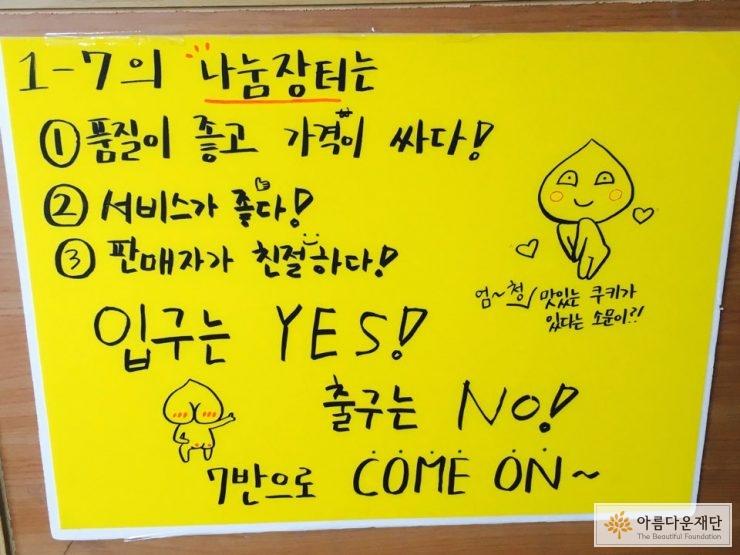 1-7의 나눔장터는
① 품질이 좋고 가격이 싸다!
② 서비스가 좋다!
③ 판매자가 친절하다!
엄~청 맛있는 쿠키가
있다는 소문이?!
입구는 YES!
출구는 NO!
7반으로 COME ON~
아름다운재단
The Beautiful Foundation